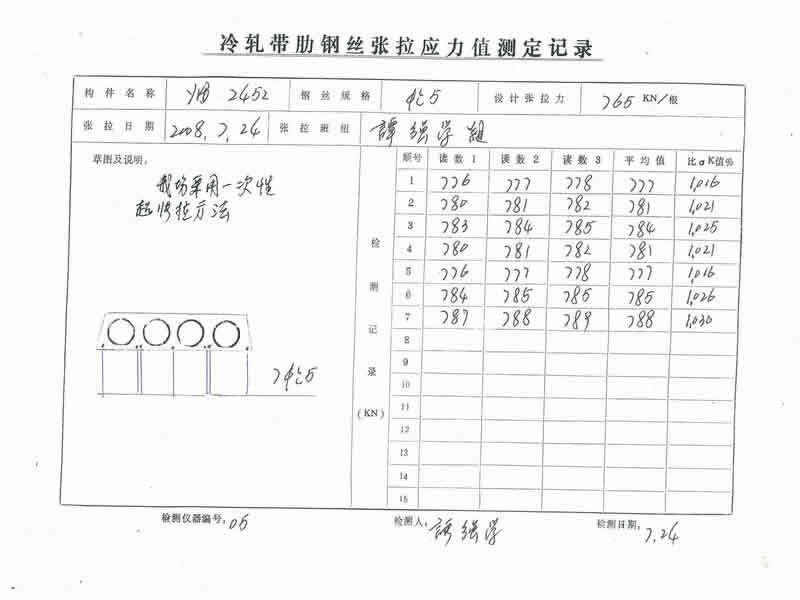 冷轧带肋钢丝张拉应力值测定记录
构件名称 YB 2452 钢丝规格 5 设计张拉力 765 KN/根
张拉日期 2008.7.24 张拉班组 谭强学组
草图及说明: 顺号 读数1 读数2 读数3 平均值 比σK值%
1 776 777 778 777 1.016
2 780 781 782 781 1.021
3 783 784 785 784 1.025
4 780 781 782 781 1.021
5 776 777 778 777 1.016
6 784 785 785 785 1.026
7 787 788 789 788 1.030
8
9
10
11
12
13
14
15
采用一次性
超张拉方法
7 5
检测记录(KN)
检测仪器编号: 05 检测人: 谭强学 检测日期: 7.24